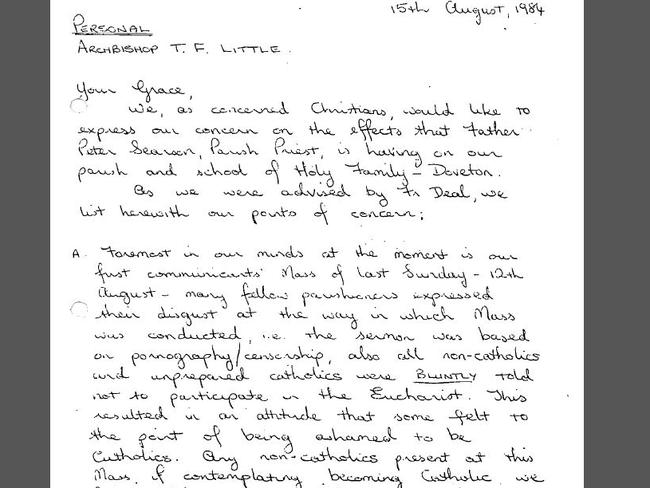 15th August, 1984
PERSONAL
ARCHBISHOP T. F. LITTLE.
Your Grace,
We, as concerned Christians, would like to
express our concern on the effects that Father
Peter Searson, Parish Priest, is having on our
parish and school of Holy Family - Doveton.
As we were advised by Fr Deal, we
list herewith our points of concern;
A. Foremost in our minds at the moment is our
first communicants' Mass of last Sunday - 12th
August - many fellow parishioners expressed
their disgust at the way in which Mass
was conducted, i.e. the sermon was based
on pornography/censorship, also all non-catholics
and unprepared catholics were BLUNTLY told
not to participate in the Eucharist. This
resulted in an attitude that some felt to
the point of being ashamed to be
Catholics. Any non-catholics present at this
Mass, if contemplating becoming Catholic, we